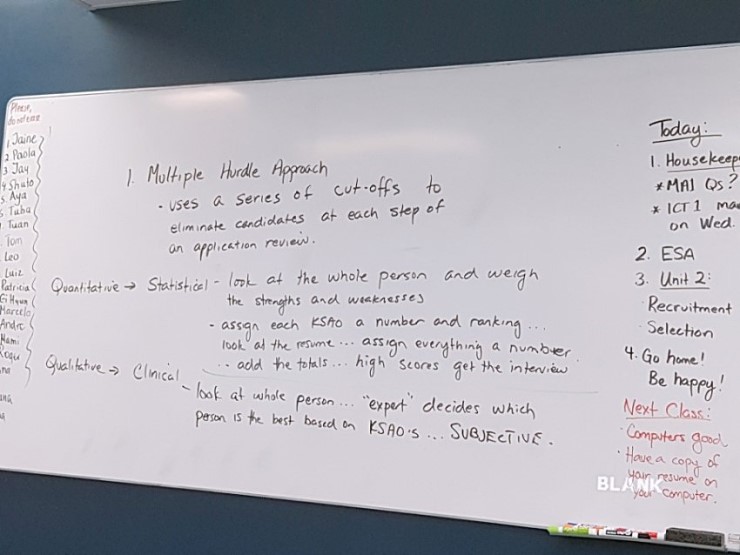 Please,
do not erase
1. Jaine
2. Paola
3. Jay
4 Shuto
5. Aya
Tuba
Tuan
Tom
Leo
Luiz
Patricia
Marcelo
Andre
1. Multiple Hurdle Approach
- uses a series of cut-offs to
eliminate candidates at each step of
an application review.
Quantitative → Statistical - look at the whole person and weigh
the strengths and weaknesses
- assign each KSAO a number and ranking...
look at the resume... assign everything a number
... add the totals... high scores get the interview
Qualitative → Clinical
- look at whole person... "expert" decides which
person is the best based on KSAO's... SUBJECTIVE.
Today:
1. Housekeep
* MA1 Qs?
* ICT 1 ma
on Wed.
2. ESA
3. Unit 2:
Recruitment
Selection
4. Go home!
Be happy!
Next Class:
· Computers good
· Have a copy of
your resume on
your computer.
BLANK